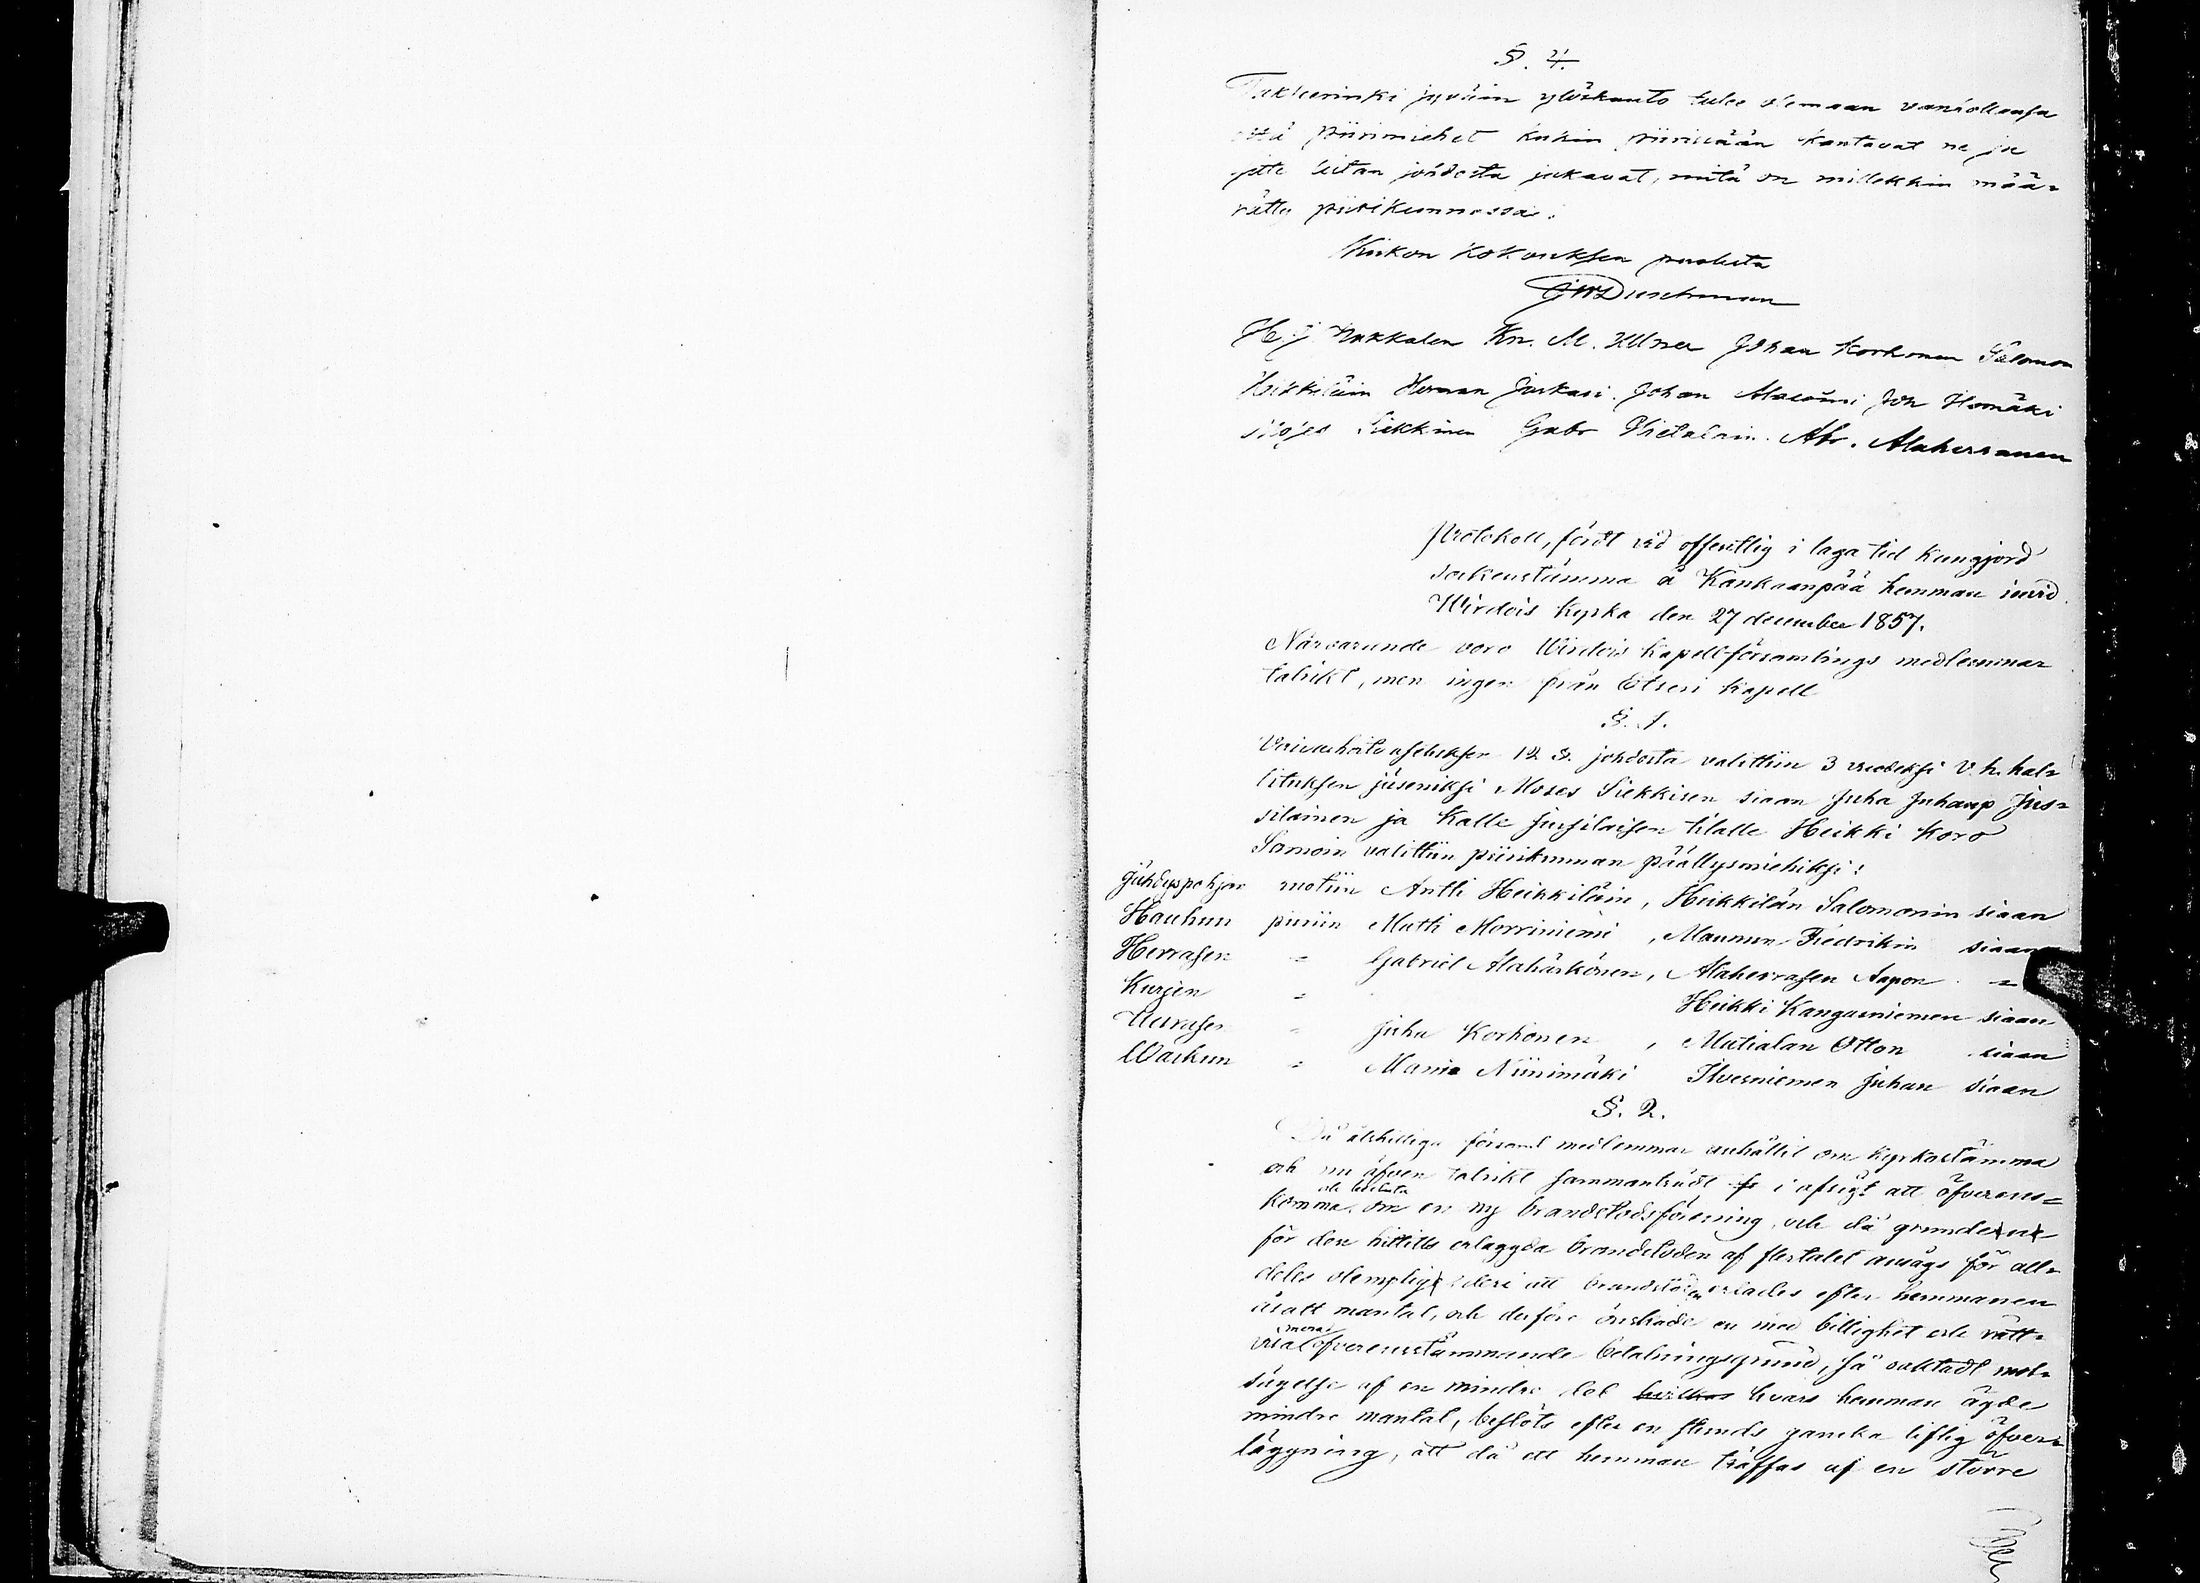 §. 4.
jyväin ylöskanto tulee olemaan
että piirimiehet kukin piirissään kantavat ne ja
sitten jakavat, mitä on millekkin mää-
rätty piirikunnassa.
Kirkon Kokouksen puolesta
Durchman
H. J. Kn. M. Johan Korhonen Salomon
Heikkiläin Herman Johan Joh
Moses Siekkinen Gabr Abr. Alaherranen
Protokoll, fördt vid offentlig i laga tid kungjord
sockenstämma å Kankaanpää hemman invid
Wirdois Kyrka den 27 december 1857.
Närvarande voro Wirdois Kapell-församlings medlemmar
talrikt, men ingen från Etseri Kapell
§. 1.
12 §. johdosta valittiin 3 vuodeksi V. h. hal-
lituksen jäseniksi Moses Siekkisen siaan Juha Juhanp Jus-
silainen ja Kalle Jussilaisen tilalle Heikki Koro
Samoin valittiin piirikunnan päällysmiehiksi:
Jähdyspohjan Antti Heikkiläin, Heikkilän Salomonin siaan
Hauhun piiriin Matti Morriniemi, Maunun Fredrikin siaan
Herrasen " Gabriel Alahärkönen, Alaherrasen Aapon "
Kurjen " Heikki Kangasniemen siaan
" Juha Korhonen, Mutialan Otton siaan
Waskun " Niinimäki Ilvesniemen Juhan siaan
§. 2.
Då åtskilliga församl medlemmar anhållit om kyrkostämma
och nu äfven talrikt sammanträdt i afsigt att öfverens-
komma och besluta om en ny brandstodsförening, och då grunden
för den hittills erlagda brandstoden af flertalet ansågs för all-
deles olämplig deri att brandstoden erlades efter hemmanens
åsatt mantal, och derföre önskade en med billighet och rätt-
visa mera öfverensstämmande betalningsgrund, så oaktadt mot-
sägelse af en mindre del hvars hemman ägde
mindre mantal, beslöts efter en stunds ganska liflig öfver-
läggning, att då ett hemman träffas af en större